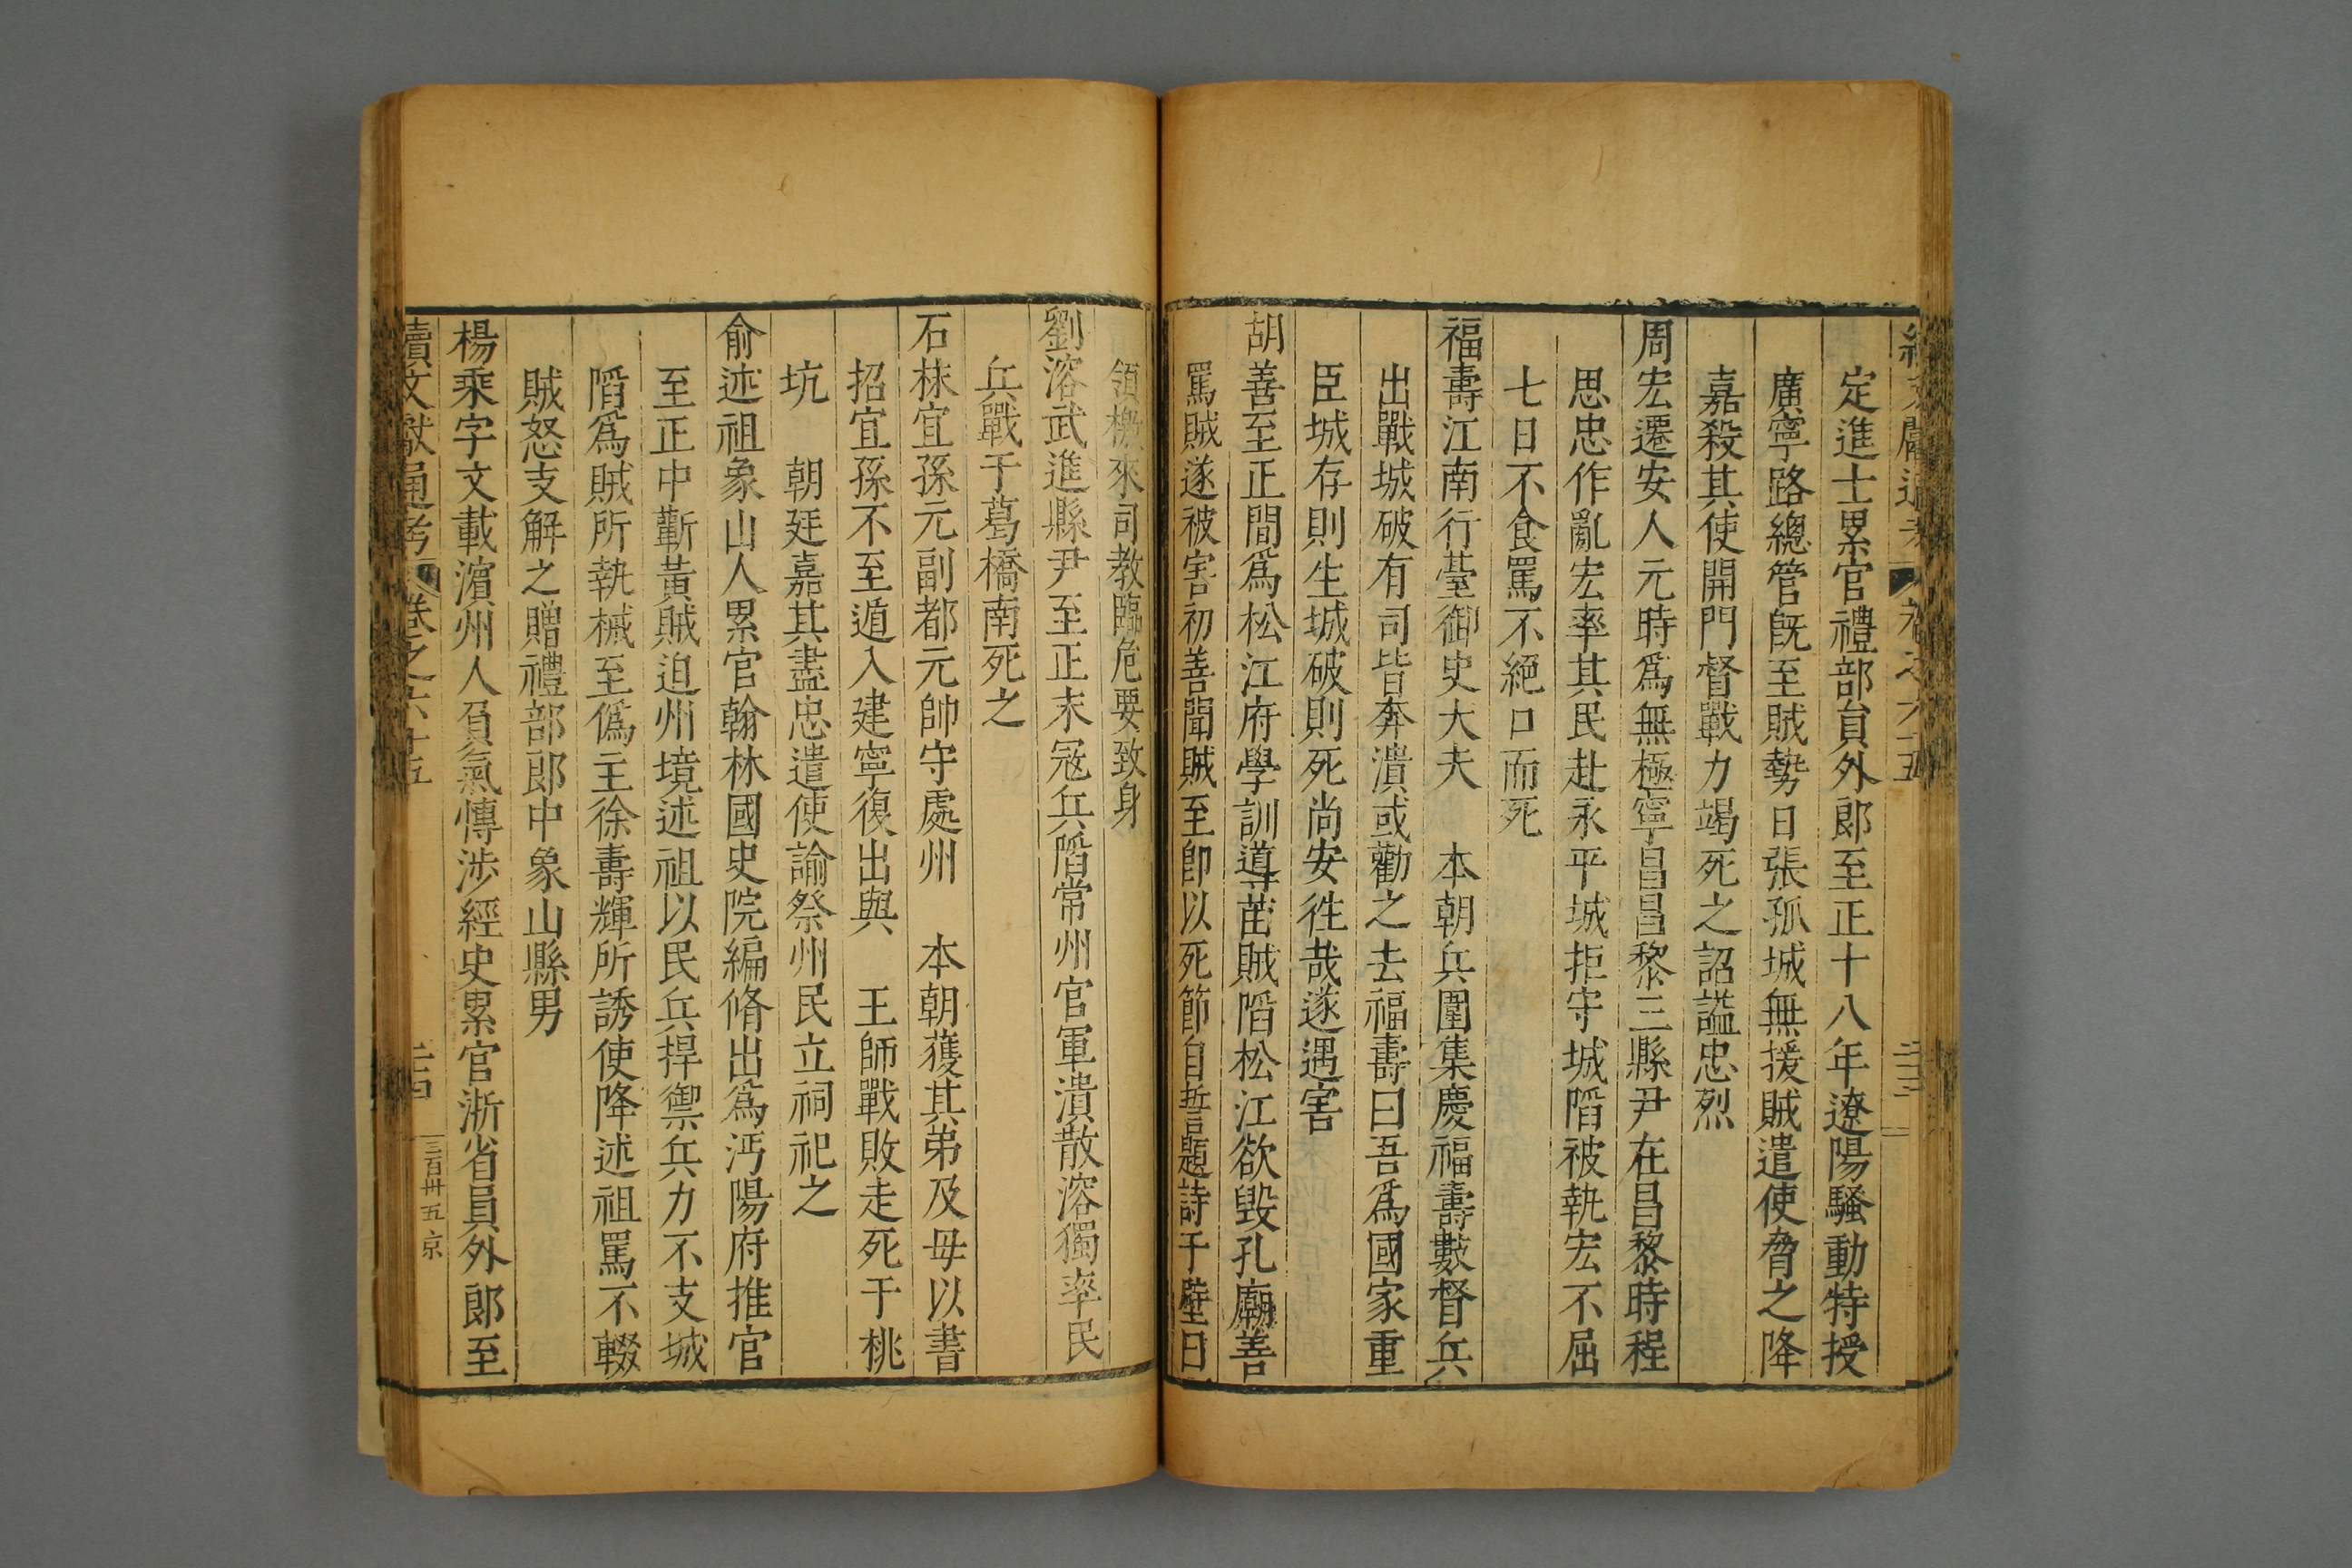 續文獻通考 卷之六十五 二十三
定進士累官禮部員外郎至正十八年遼陽騷動特授
廣寧路總管旣至賊勢日張孤城無援賊遣使脅之降
嘉殺其使開門督戰力竭死之詔謚忠烈
周宏遷安人元時爲無極寧昌昌黎三縣尹在昌黎時程
思忠作亂宏率其民赴永平城拒守城䧟被執宏不屈
七日不食罵不絕口而死
福壽江南行臺御史大夫 本朝兵圍集慶福壽數督兵
出戰城破有司皆奔潰或勸之去福壽曰吾爲國家重
臣城存則生城破則死尚安徃哉遂遇害
胡善至正間爲松江府學訓導苗賊䧟松江欲毀孔廟善
罵賊遂被害初善聞賊至卽以死節自誓題詩于壁曰
領檄來司教臨危要致身
劉溶武進縣尹至正末冦兵䧟常州官軍潰散溶獨率民
兵戰于葛橋南死之
石抹宜孫元副都元帥守處州 本朝獲其弟及母以書
招宜孫不至遁入建寧復出與 王師戰敗走死于桃
坑 朝廷嘉其盡忠遣使諭祭州民立祠祀之
俞述祖象山人累官翰林國史院編脩出爲沔陽府推官
至正中蘄黃賊迫州境述祖以民兵捍禦兵力不支城
䧟爲賊所執械至僞主徐壽輝所誘使降述祖罵不輟
賊怒支解之贈禮部郎中象山縣男
楊乘字文載濵州人負氣慱涉經史累官浙省員外郎至
續文獻通考 卷之六十五 二十四 三百卅五 京